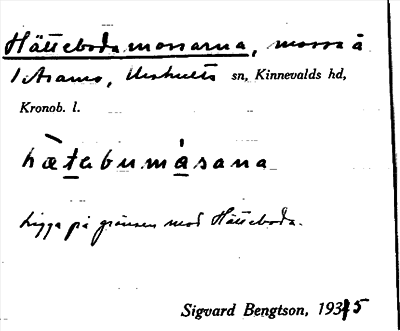 Hättebodamossarna, mossa å
1 Aramo, Urshults sn, Kinnevalds hd,
Kronob. l.
hætabumåsana
ligga på gränsen mod Hätteboda.
Sigvard Bengtson, 1935